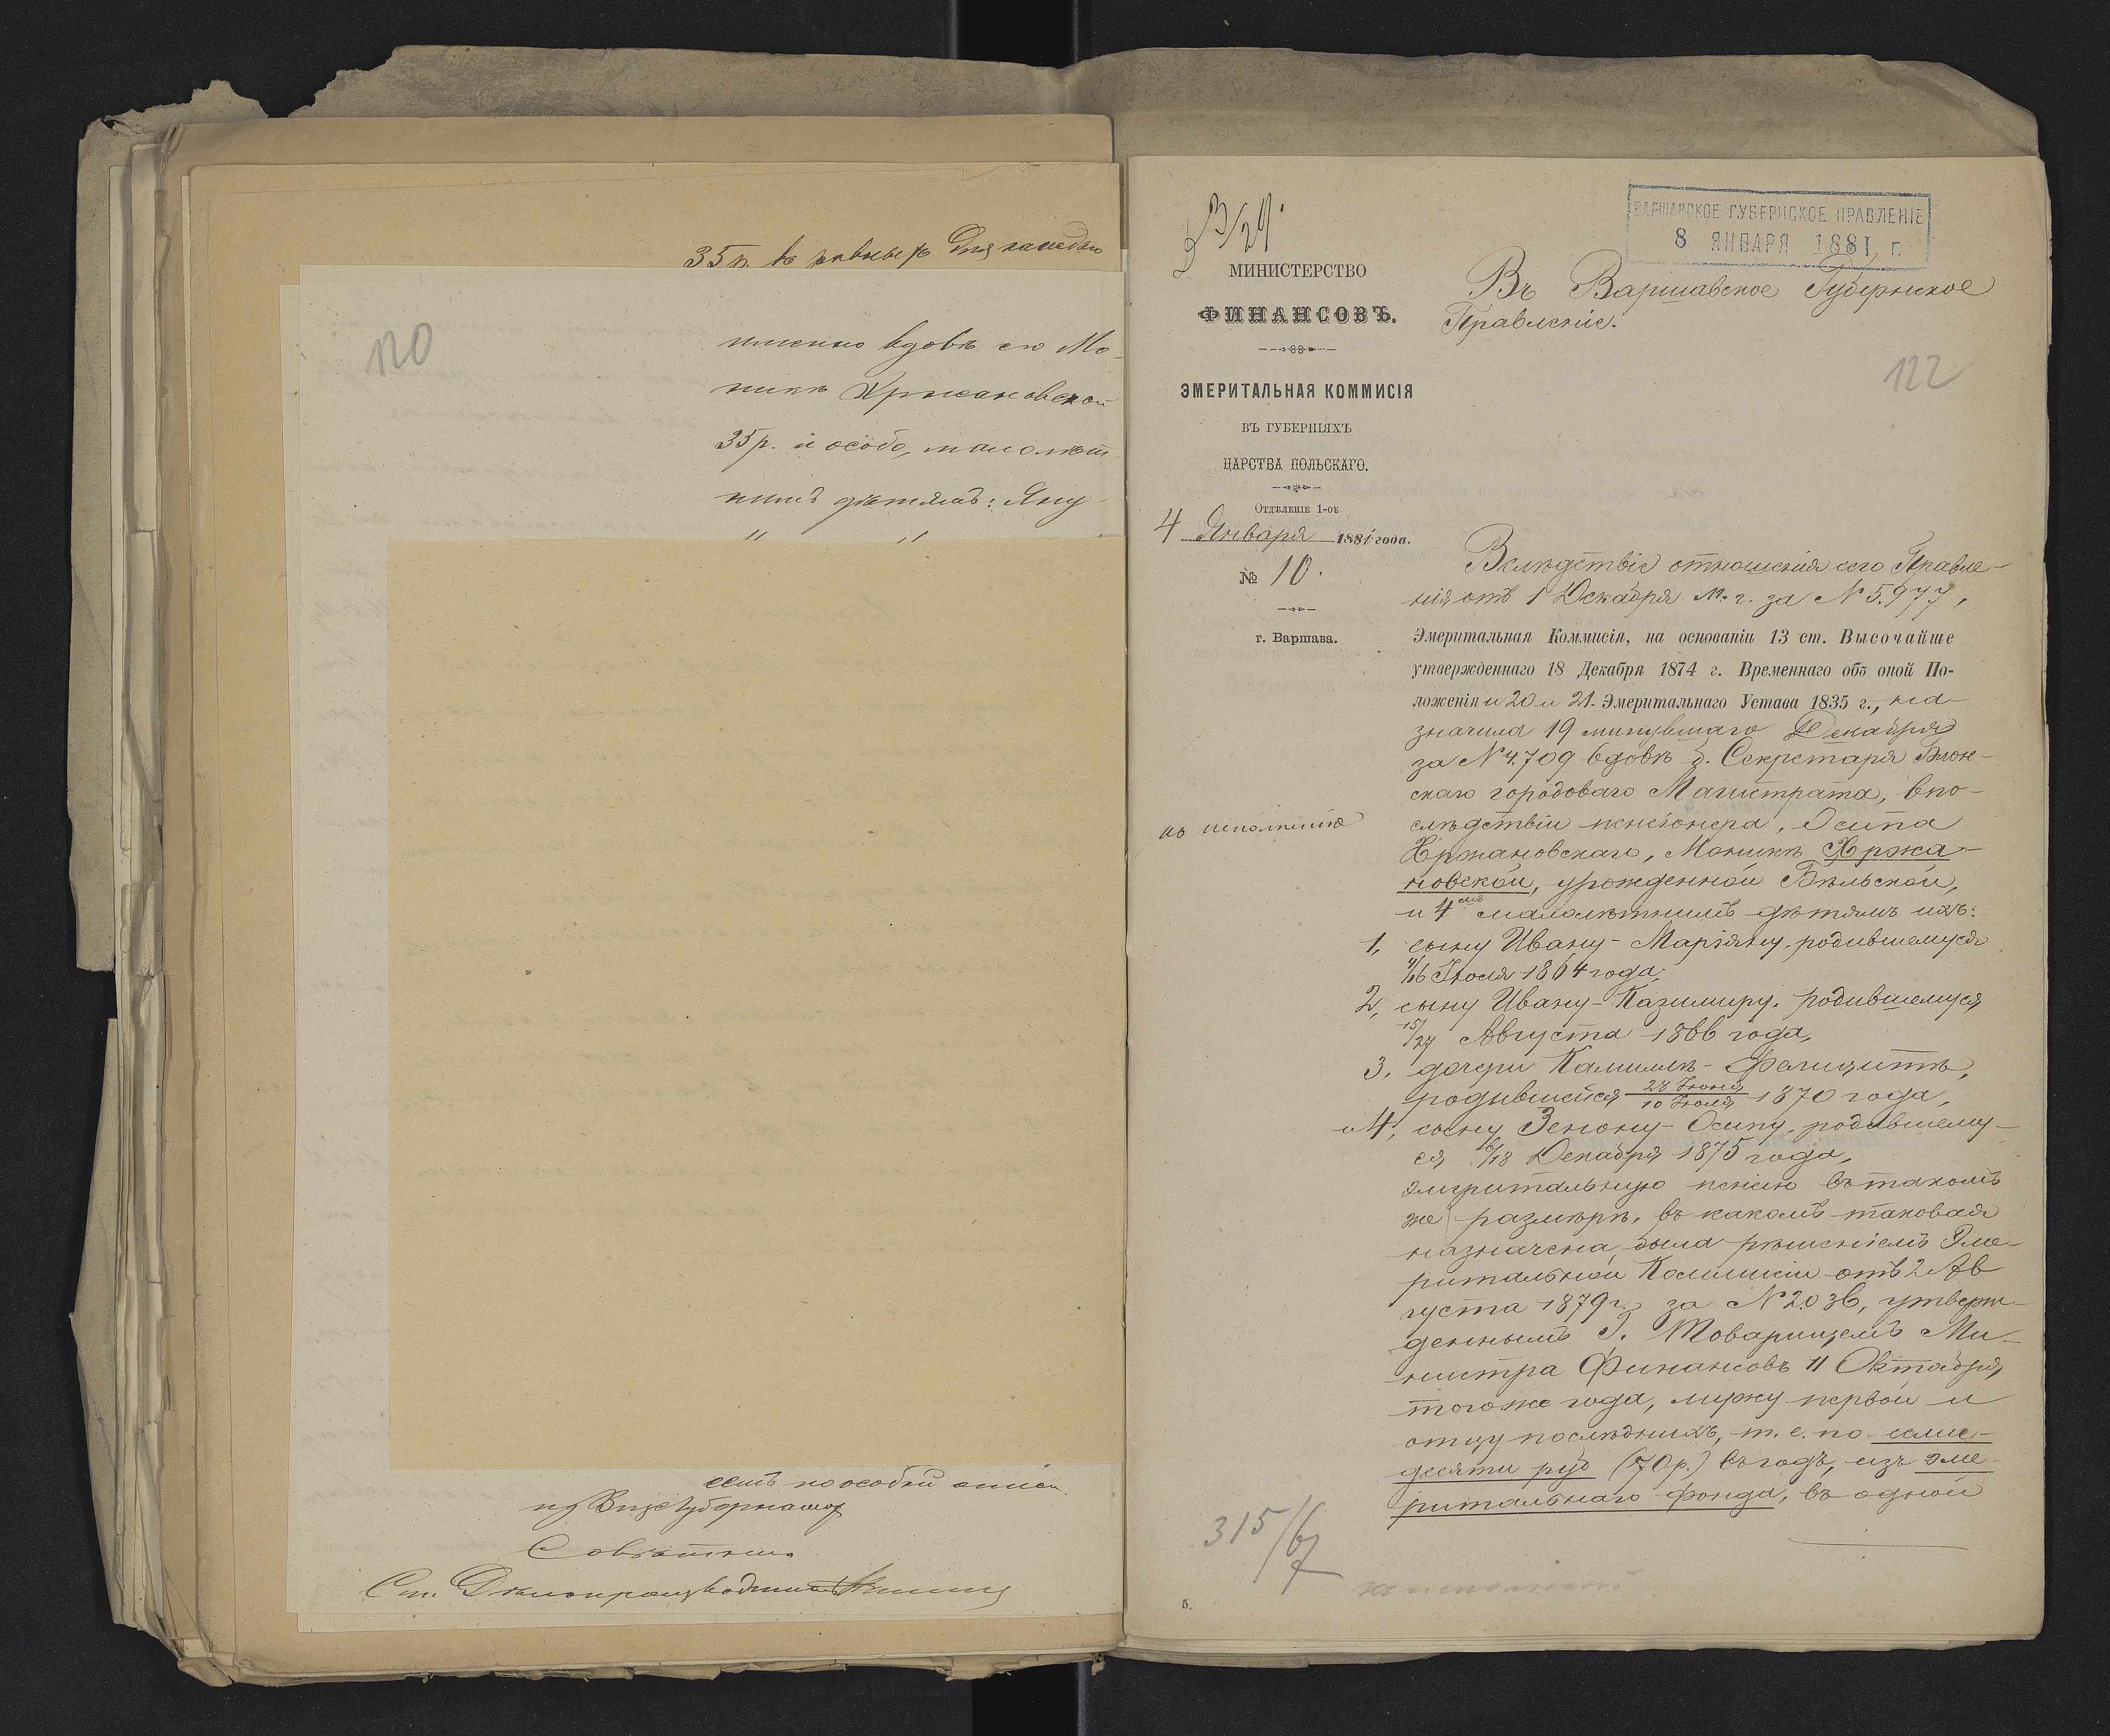 35 р. въ равныхъ
120
именно вдовѣ его Мо-
никѣ Хржановской
35 р. и особо, малолѣт
нимъ дѣтямъ: Яну
семъ по особой
Вицегуберна­торъ
Совѣтникъ
Ст. Дѣлопроизводитель
3/29.
ВАРШАВСКОЕ ГУБЕРНСКОЕ ПРАВЛЕНІЕ
8 ЯНВАРЯ 1881 г.
МИНИСТЕРСТВО
ФИНАНСОВЪ.
ЭМЕРИТАЛЬНАЯ КОММИСІЯ
ВЪ ГУБЕРНІЯХЪ
ЦАРСТВА ПОЛЬСКАГО.
Отдѣленіе 1-ое
4 Января 1881 года.
№ 10.
г. Варшава.
Въ Варшавское Губернское
Правленіе.
122
Вслѣдствіе отношенія сего Правле-
нія отъ 1 Декабря м. г. за № 5.977,
Эмеритальная Коммисія, на основаніи 13 ст. Высочайше
утвержденнаго 18 Декабря 1874 г. Временнаго объ оной По-
ложенія и 20 и 21. Эмеритальнаго Устава 1835 г., на-
значила 19 минувшаго Декабря
за № 4.709 вдовѣ б. Секретаря Блон-
скаго городоваго Магистрата, впо-
слѣдствіи пенсіонера, Осипа
Хржановскаго, Моникѣ Хржа-
новской, урожденной Бѣльской,
и 4мъ малолѣтнимъ дѣтямъ ихъ:
1, сыну Ивану-Маріяну, родившемуся
4/16 Іюля 1864 года,
2, сыну Ивану-Казимиру, родившемуся
15/27 Августа 1866 года,
3, дочери Камиллѣ-Фелицитѣ,
родившейся 28 Іюня/10 Іюля 1870 года,
и 4, сыну Зенону-Осипу, родившему-
ся 6/18 Декабря 1875 года,
эмеритальную пенсію въ такомъ
же размѣрѣ, въ какомъ таковая
назначена была рѣшеніемъ Эме-
ритальной Коммисіи отъ 2 Ав
густа 1879 г. за № 2.036, утверж-
деннымъ Г. Товарищемъ Ми-
нистра Финансовъ 11 Октября
тогоже года, мужу первой и
отцу послѣднихъ, т. е. по семи-
десяти руб (70 р.) въ годъ, изъ Эме-
ритальнаго фонда, въ одной
къ исполненію
315/67
5.